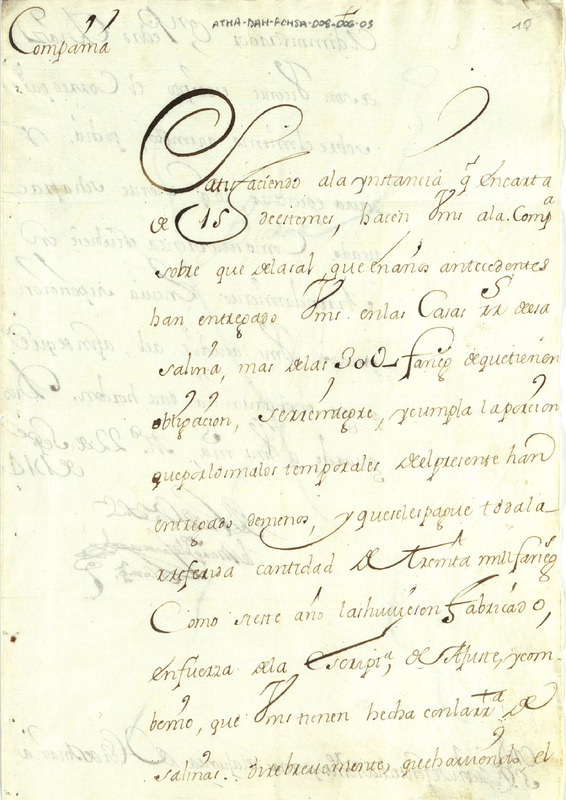 ATHA-DAH-FCHSA-008-006-03
19
Compañia
Satisfaciendo ala ynstancia q̃ en carta
de 15 de este mes, hacen Vms ala Compª
sobre que dela sal, que en años antecedentes
han entregado Vms. en las Casas rrˢ de esa
salina, mas de las 30U fanegˢ de que tienen
obligacion, se rreintegre, y cumpla la porcion
que por los malos temporales del presente han
entregado de menos, y que seles pague toda la
rreferida cantidad de treinta mill fanegˢ
Como si este año las huuiesen fabricado,
en fuerza de la Escriptª de Ajuste, y com-
benio, que Vms tienen hecha con la rrᵗᵃ de
salinas. dire brevemente, que haviendo el